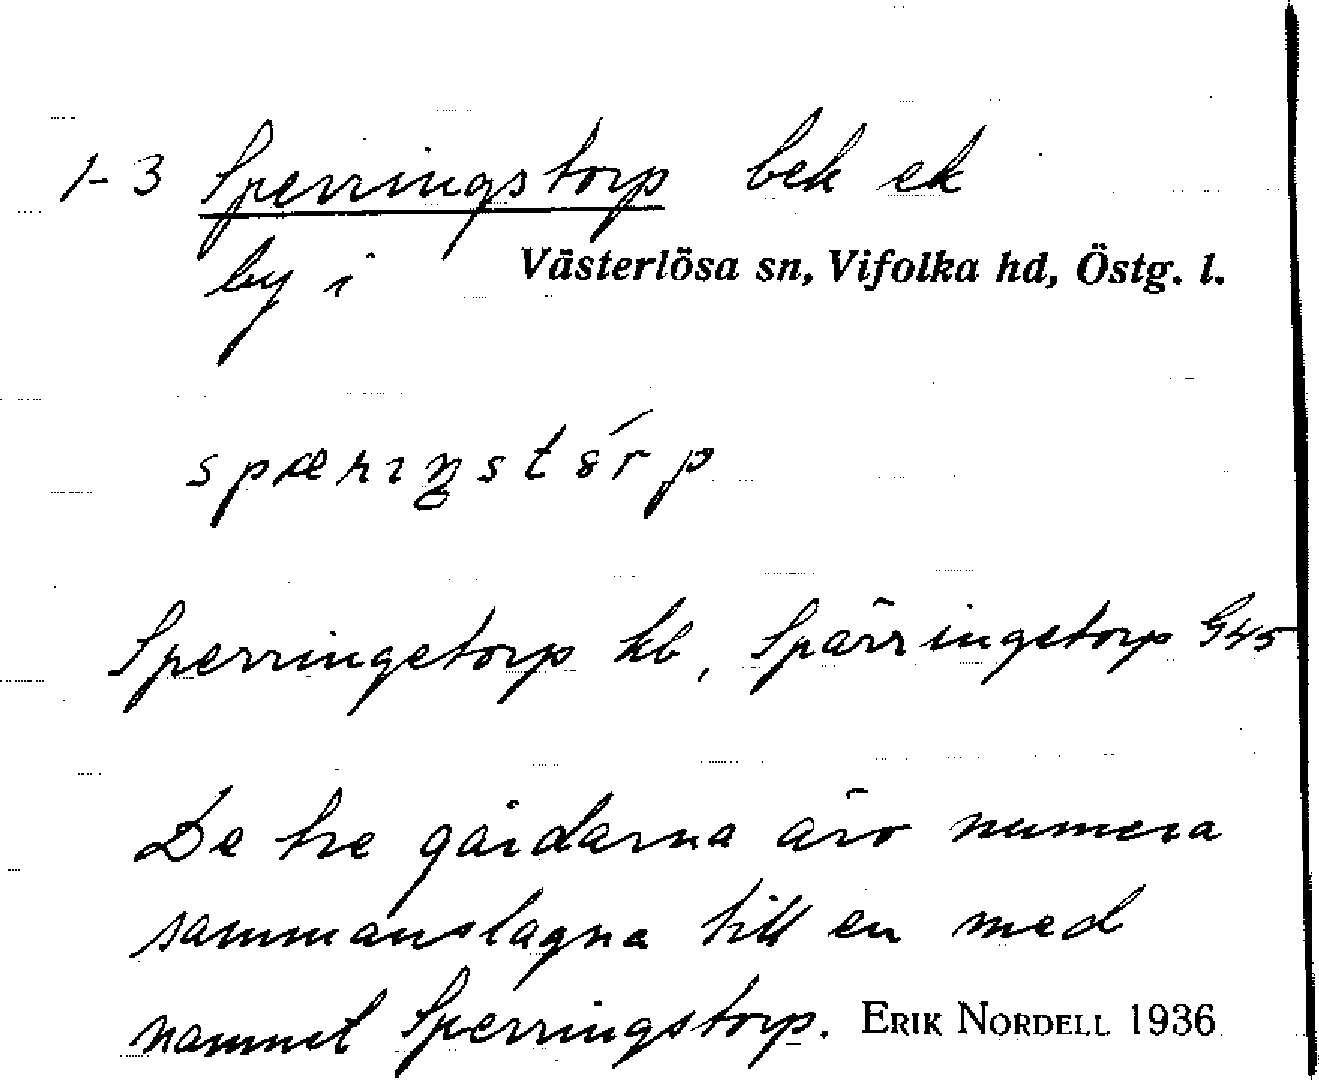 1-3 Sperringstorp bek ek
by i Västerlösa sn, Vifolka hd, Östg. l.
Sperringetorp kb, Spärringetorp G45
De tre gårdarna äro numera
sammanslagna till en med
namnet Sperringstorp. ERIK NORDELL 1936